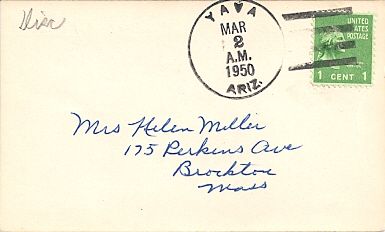 Disc
YAVA
MAR
2
A.M.
1950
ARIZ.
UNITED
STATES
POSTAGE
1 CENT 1
Mrs Helen Miller
175 Perkins Ave
Brockton
Mass